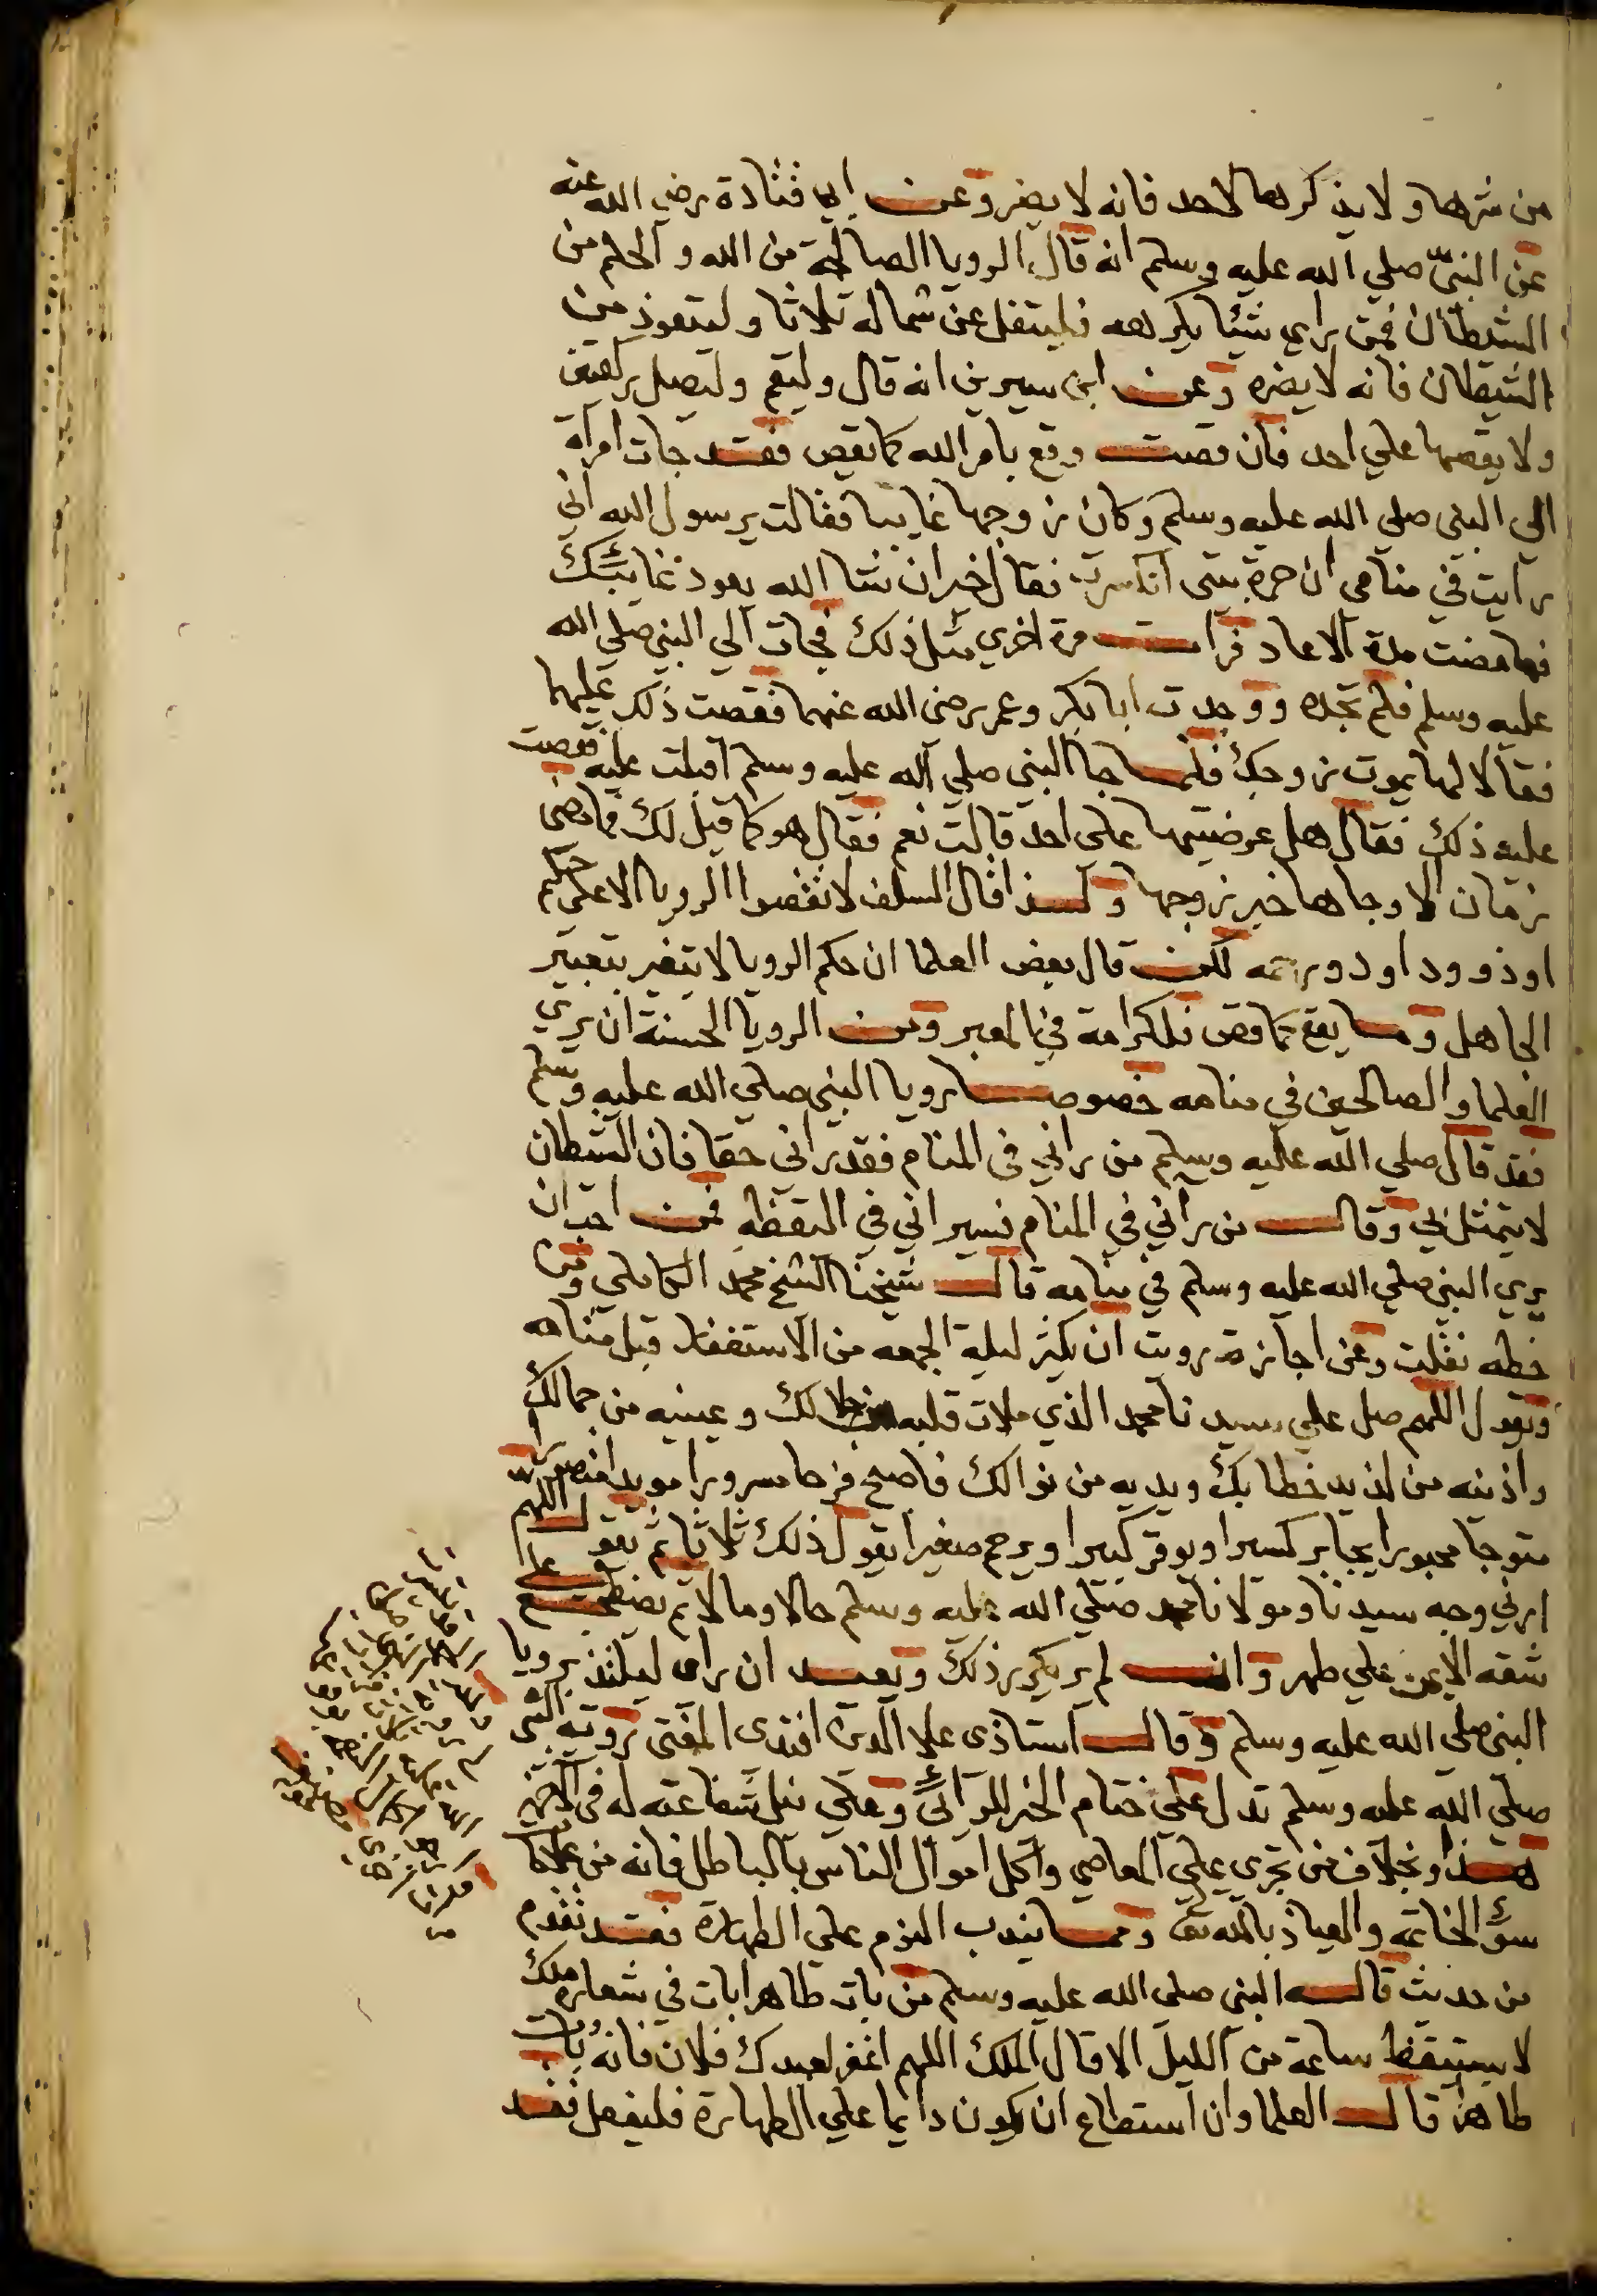 من شرها ولا يذكرها لاحد فانه لا يضر وعن ابي قتادة رضي الله عنه
عن النبيّ صلي الله عليه وسلم انه قال الرويا الصالحة من الله والحلم من
الشيطان فمن راي شيئا يكرهه فليتفل عن شماله ثلاثا وليتعوذ من
الشيطان فانه لا يضره وعن ابن سيرين انه قال وليقم وليصل ركعتين
ولا يقصها علي احد فان قصت وقع بامر الله كما تقص فقد جات امراة
الي النبي صلي الله عليه وسلم وكان زوجها غايبا فقالت يرسول الله اني
رايت في منامي ان جرة بيتي انكسرت فقال خير ان شا الله يعود غايبك
فما مضت مدة الا عاد فرات مرة اخري مثل ذلك فجات الي النبي صلي الله
عليه وسلم فلم تجده ووجدت ابا بكر وعمر رضي الله عنهما فقصت ذلك عليهما
فقالا لها يموت زوجك فلما جا النبي صلي الله عليه وسلم اقبلت عليه فقصت
عليه ذلك فقال هل عرضتيها علي احد قالت نعم فقال هو كما قيل لك فما مضي
زمان الا وجاها خبر زوجها وكذا قال السلف لا تقصوا الرويا الا علي حكيم
او ذو ود او دوريمه لكن قال بعض العلما ان حكم الرويا لا يتغير بتعبير
الجاهل وما يقع كما قص فلكرامة في المعبر ومن الرويا الحسنة ان يري
العلما والصالحين في منامه خصوصا رويا النبي صلي الله عليه وسلم
فقد قال صلي الله عليه وسلم من راني في المنام فقد راني حقا فان الشيطان
لا يتمثل بي وقال من راني في المنام فسيراني في اليقظه فمن احب ان
يري النبي صلي الله عليه وسلم في منامه قال شيخنا الشيخ محمد الكاملي ومن
خطه نقلت وعن اجازته رويت ان يكثر ليلة الجمعه من الاستغفار قبل منامه
ويقول اللهم صل علي سيدنا محمد الذي ملات قلبه من جلالك وعينيه من جمالك
واذنيه من لذيذ خطابك ويديه من نوالك فاصبح فرحا مسرورا مويدا منصورا
متوجا محبورا يجابر كسيرا ويوقر كبيرا ويرحم صغيرا يقول ذلك ثلاثا ثم يقول اللهم
ارني وجه سيدنا ومولانا محمد صلي الله عليه وسلم حالا ومالا ثم يضطجع علي
شقه الايمن علي طهر وان لم ير يكرر ذلك ويعيد ان راي ليلتذ برويا
النبي صلي الله عليه وسلم وقال استاذي علا الدين افندي المفتي رويته النبي
صلي الله عليه وسلم تدل علي ختام الخير للرائي وعلي نيل شفاعته له في الاخرة
هذا وبخلاف من تجري علي المعاصي واكل اموال الناس بالباطل فانه من علامة
سوء الخاتمه والعياذ بالله تعا ومما يندب النوم علي الطهارة فقد تقدم
من حديث قال النبي صلي الله عليه وسلم من بات طاهرا بات في شعاره ملك
لا يستيقظ ساعة من الليل الا قال الملك اللهم اغفر لعبدك فلان فانه بات
طاهرا قال العلما وان استطاع ان يكون دايما علي الطهارة فليفعل فقد